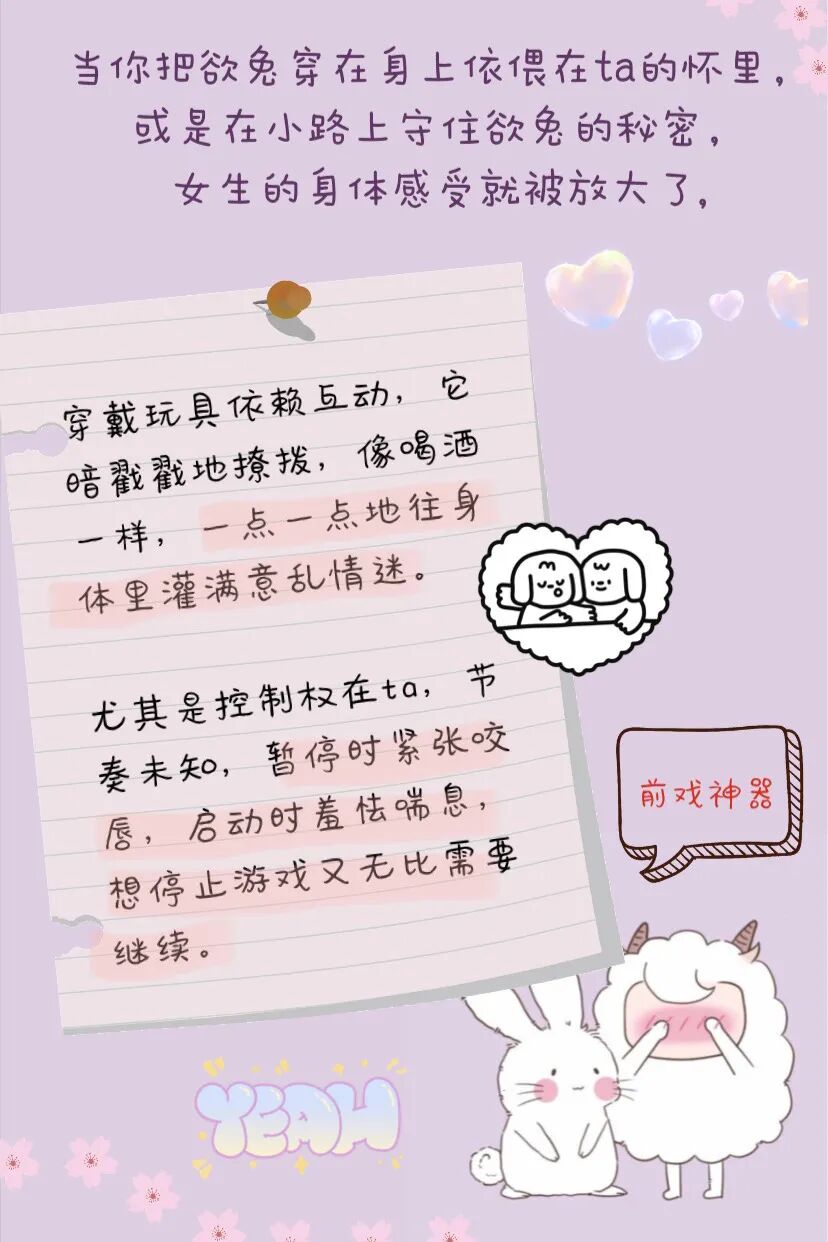 当你把欲兔穿在身上依偎在ta的怀里，
或是在小路上守住欲兔的秘密，
女生的身体感受就被放大了，
穿戴玩具依赖互动，它
暗戳戳地撩拨，像喝酒
一样，一点一点地往身
体里灌满意乱情迷。
尤其是控制权在ta，节
奏未知，暂停时紧张咬
唇，启动时羞怯喘息，
想停止游戏又无比需要
继续。
前戏神器
YEAH